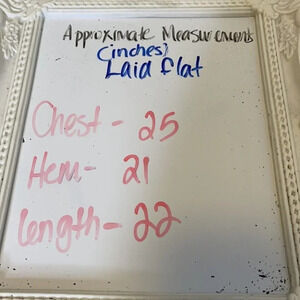 Approximate Measurements
(inches)
Laid flat
Chest - 25
Hem - 21
Length - 22